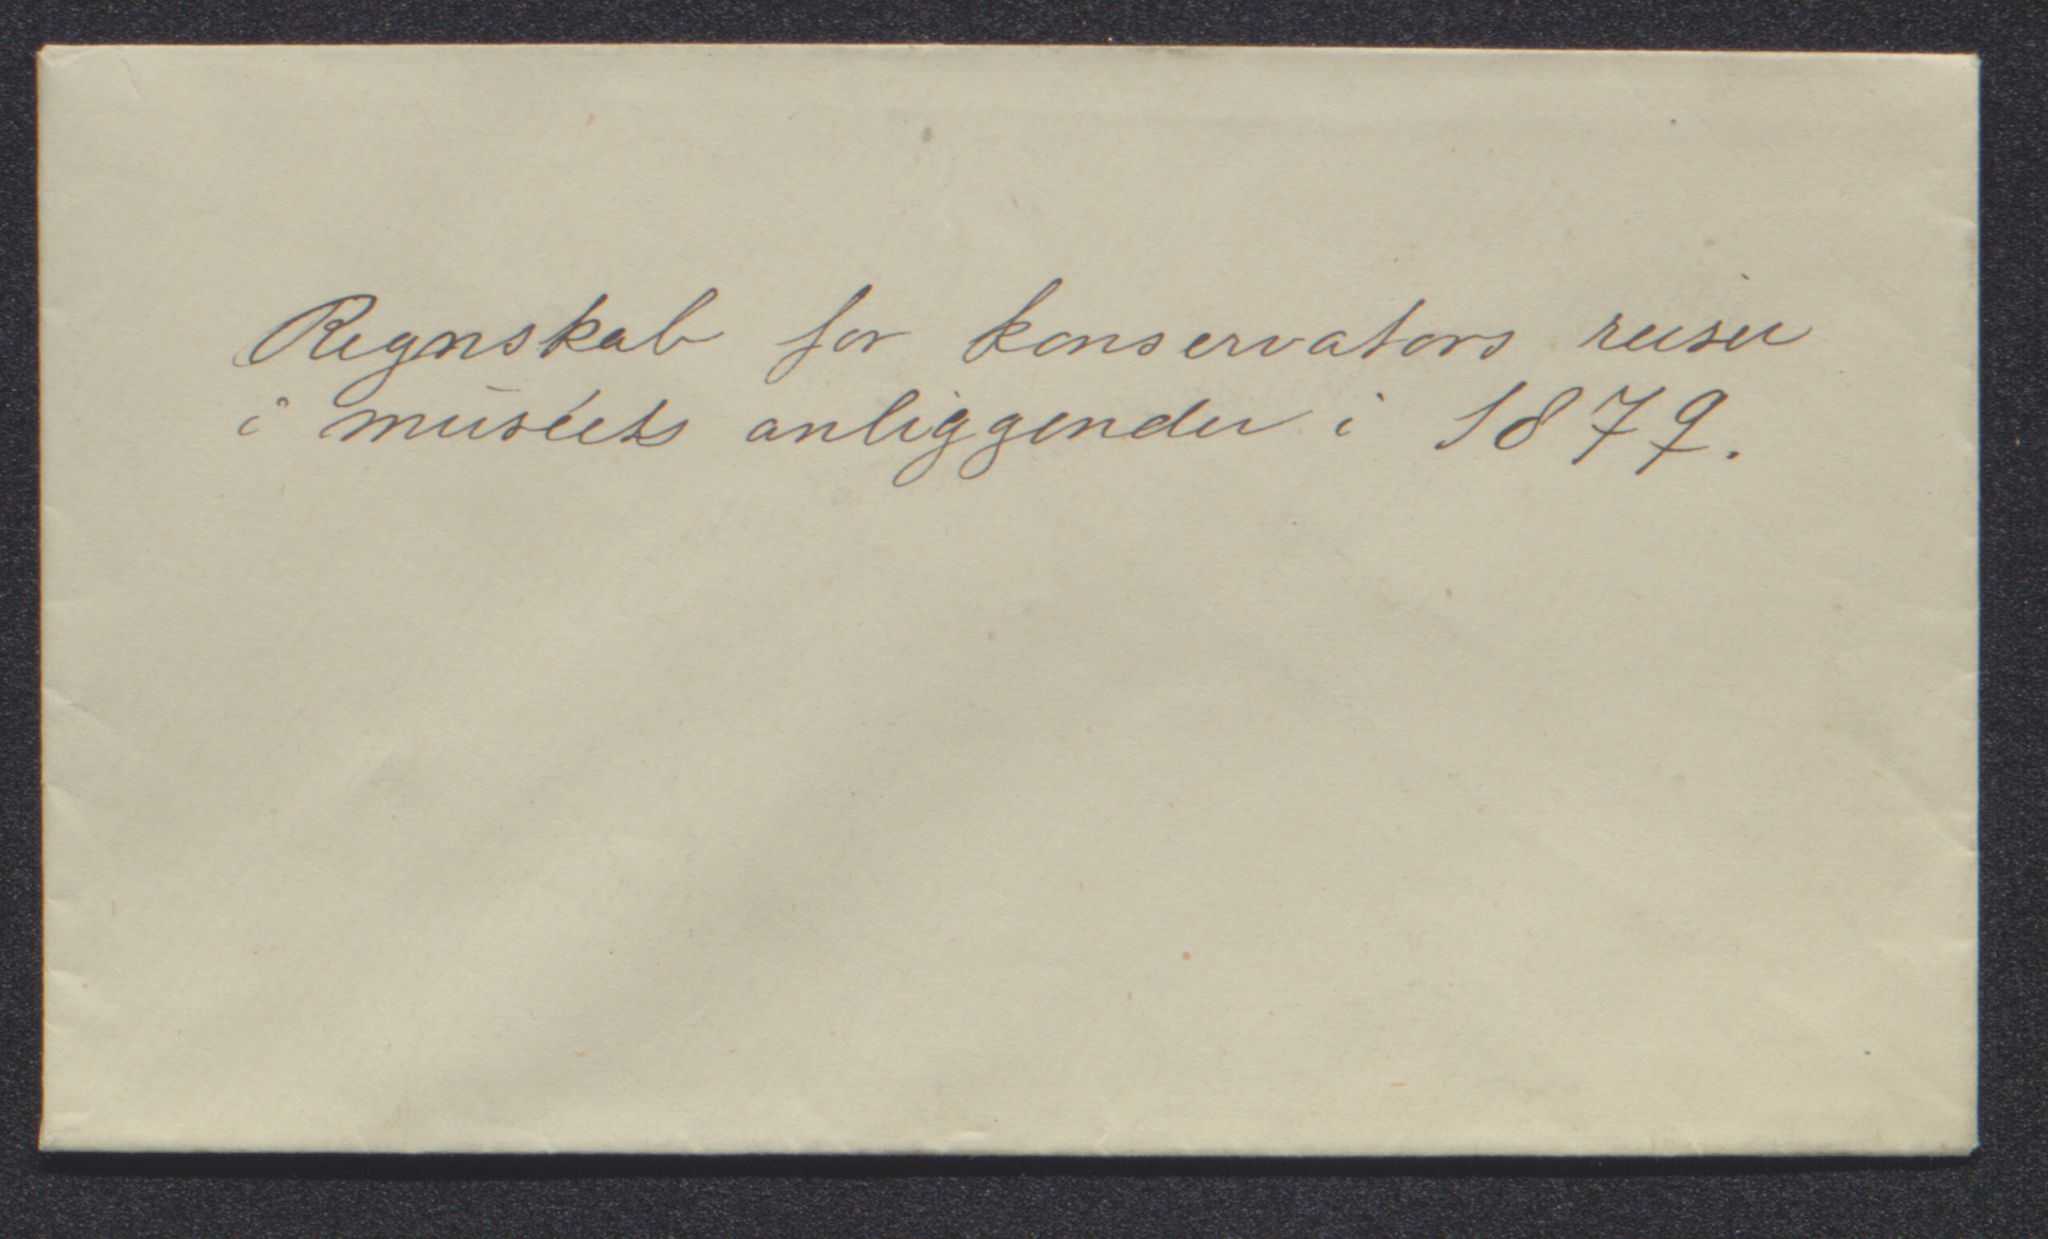 Regnskab for konservators reiser
i muséets anliggender i 1879.